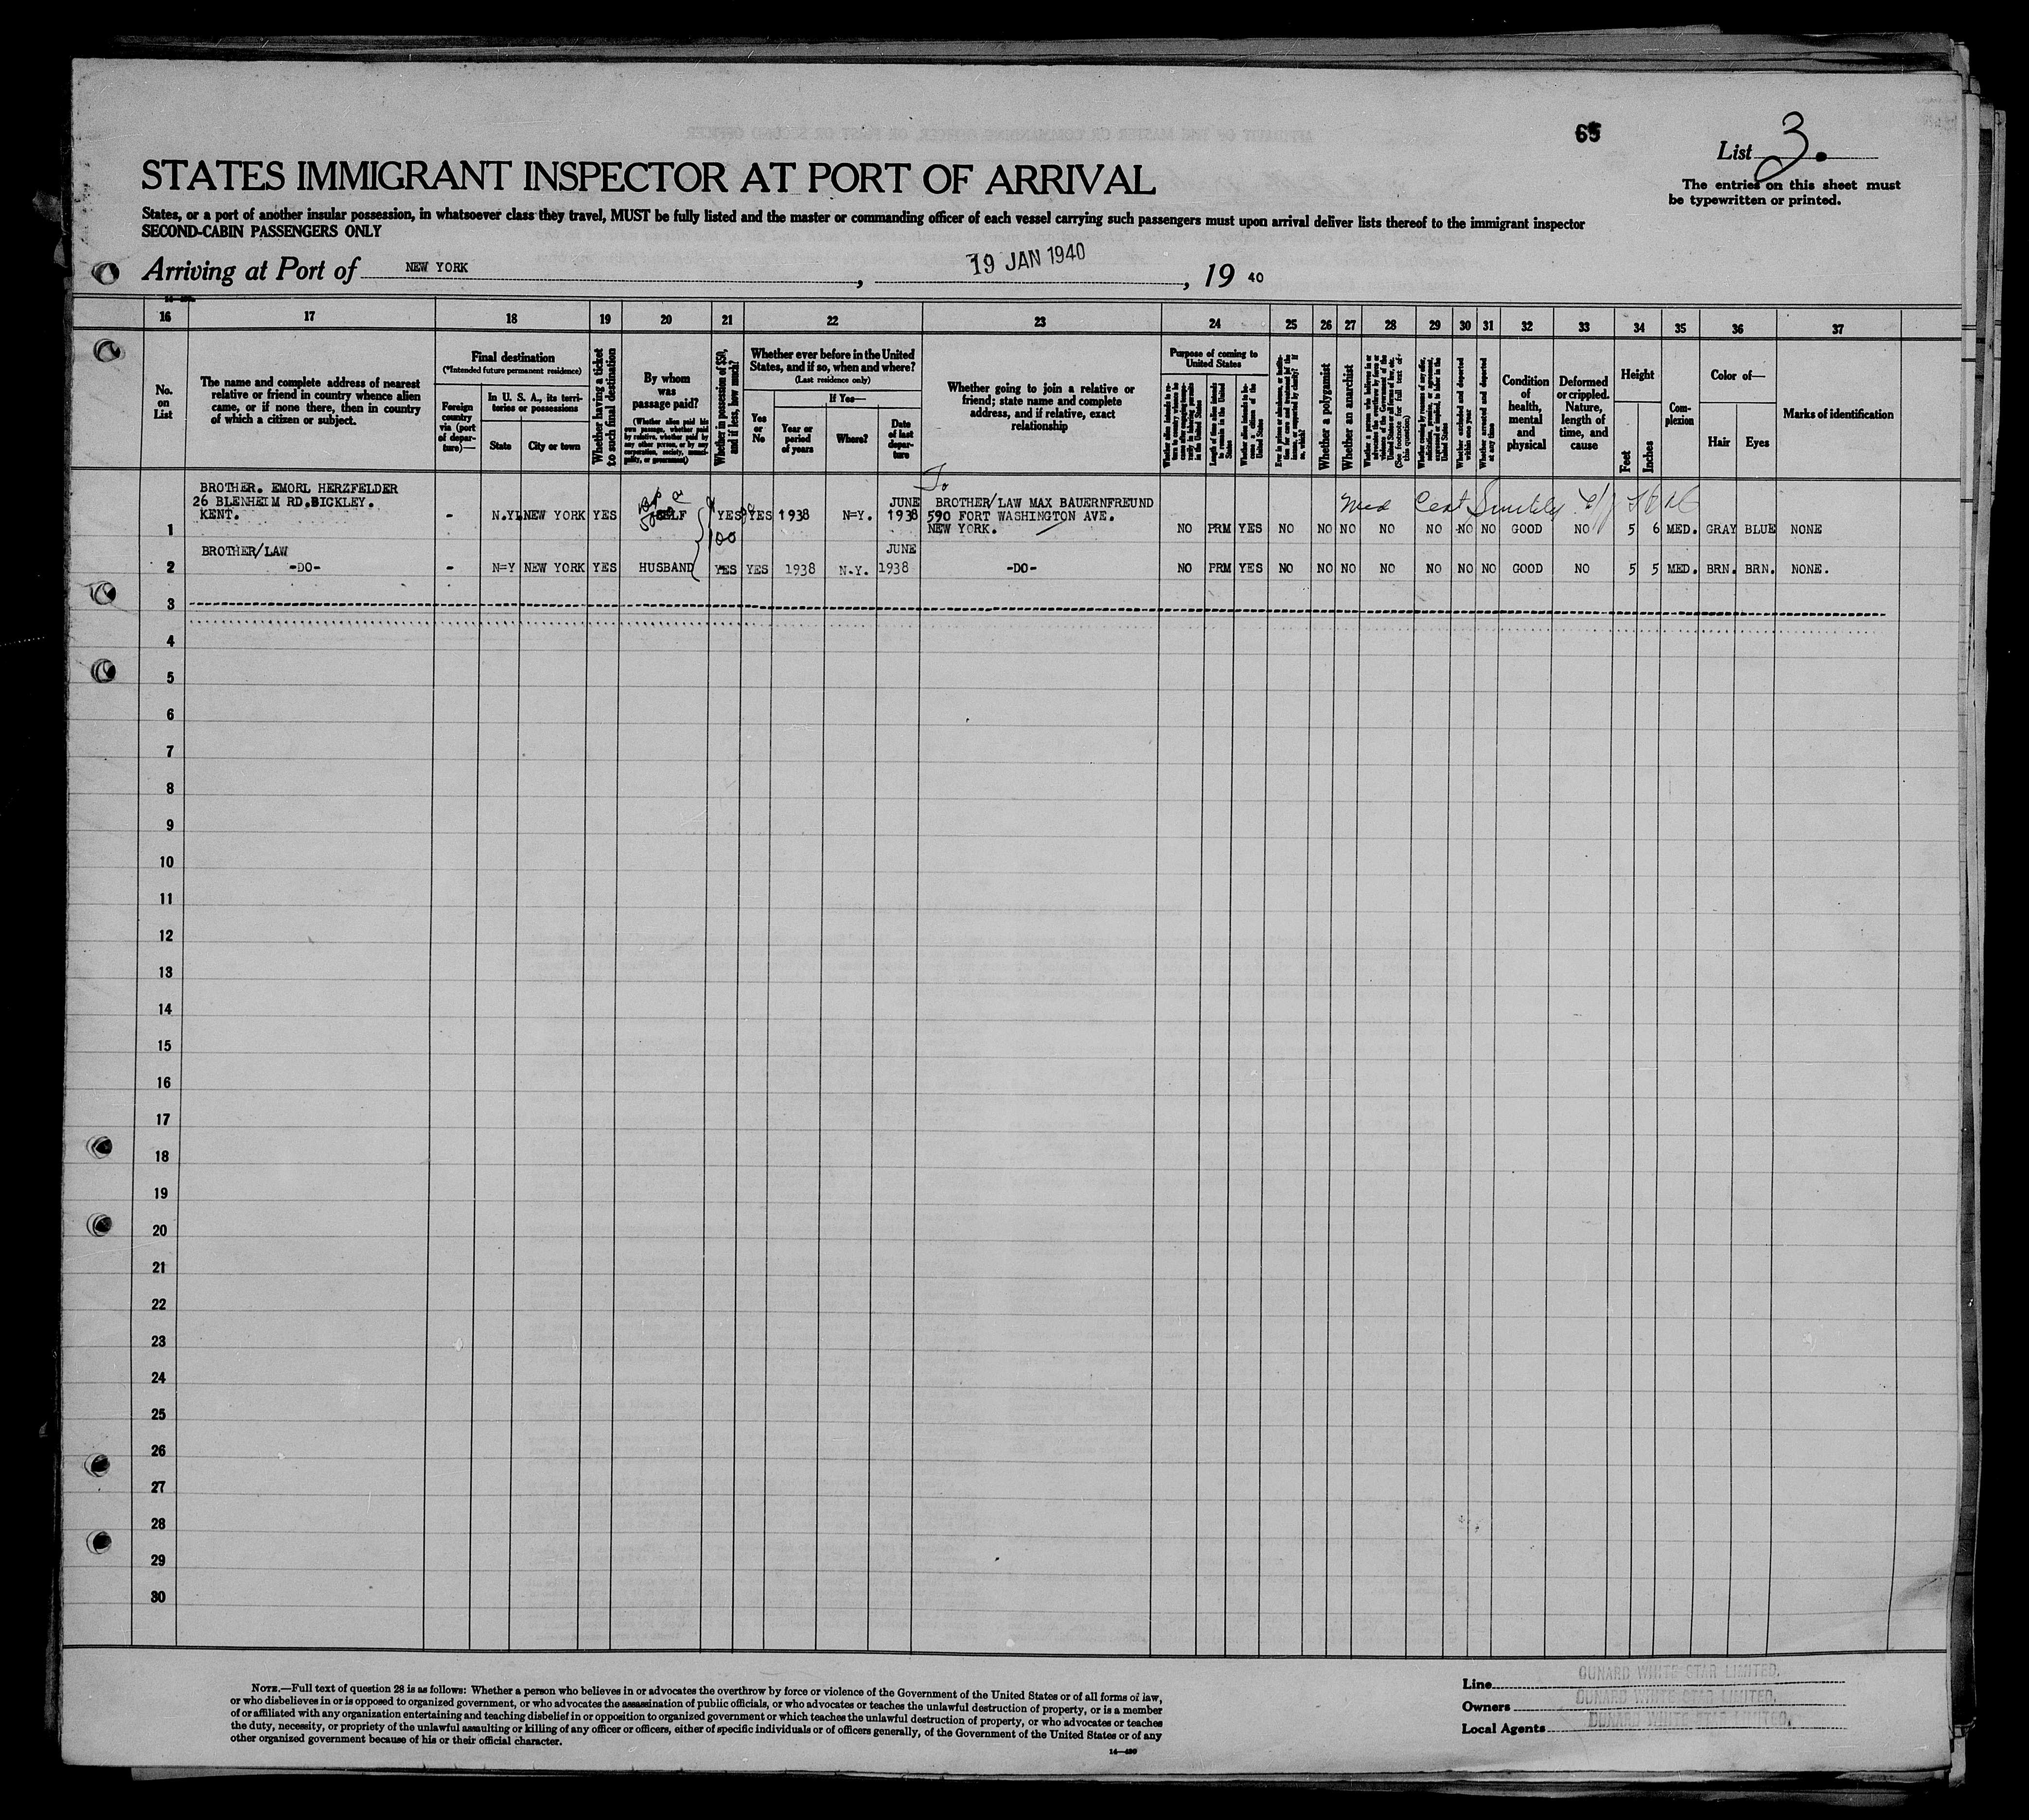 65
List 3.
The entries on this sheet must
be typewritten or printed.
STATES IMMIGRANT INSPECTOR AT PORT OF ARRIVAL
States, or a port of another insular possession, in whatsoever class they travel, MUST be fully listed and the master or commanding officer of each vessel carrying such passengers must upon arrival deliver lists thereof to the immigrant inspector
SECOND-CABIN PASSENGERS ONLY
Arriving at Port of NEW YORK, 19 JAN 1940, 19 40
16 17 18 19 20 21 22 23 24 25 26 27 28 29 30 31 32 33 34 35 36 37
No.
on
List
The name and complete address of nearest
relative or friend in country whence alien
came, or if none there, then in country
of which a citizen or subject.
Final destination
(*Intended future permanent residence)
Foreign
country
via (port
of depar-
ture)—
In U. S. A., its terri-
tories or possessions
State
City or town
Whether having a ticket
to such final destination
By whom
was
passage paid?
(Whether alien paid his
own passage, whether paid
by relative, whether paid by
any other person, or by any
corporation, society, munici-
pality, or government)
Whether in possession of $50,
and if less, how much?
Whether ever before in the United
States, and if so, when and where?
(Last residence only)
Yes
or
No
If Yes—
Year or
period
of years
Where?
Date
of last
depar-
ture
Whether going to join a relative or
friend; state name and complete
address, and if relative, exact
relationship
Purpose of coming to
United States
Length of time alien intends
to remain in the United
States
Whether alien intends to be-
come a citizen of the
United States
Whether a polygamist
Whether an anarchist
(See footnote for full text of
this question)
Whether arrested and deported
at any time
Condition
of
health,
mental
and
physical
Deformed
or crippled.
Nature,
length of
time, and
cause
Height
Feet
Inches
Com-
plexion
Color of—
Hair
Eyes
Marks of identification
To
BROTHER. EMORL HERZFELDER
26 BLENHEIM RD.BICKLEY.
KENT.
1 - N.Y. NEW YORK YES SELF YES YES 1938 N=Y. JUNE 1938
100
BROTHER/LAW MAX BAUERNFREUND
590 FORT WASHINGTON AVE.
NEW YORK.
NO PRM YES NO NO NO NO NO NO NO GOOD NO 5 6 MED. GRAY BLUE NONE
BROTHER/LAW
2 -DO- - N=Y NEW YORK YES HUSBAND YES YES 1938 N.Y. JUNE 1938 -DO- NO PRM YES NO NO NO NO NO NO NO GOOD NO 5 5 MED. BRN. BRN. NONE.
3
4
5
6
7
8
9
10
11
12
13
14
15
16
17
18
19
20
21
22
23
24
25
26
27
28
29
30
NOTE.—Full text of question 28 is as follows: Whether a person who believes in or advocates the overthrow by force or violence of the Government of the United States or of all forms of law,
or who disbelieves in or is opposed to organized government, or who advocates the assassination of public officials, or who advocates or teaches the unlawful destruction of property, or is a member
of or affiliated with any organization entertaining and teaching disbelief in or opposition to organized government or which teaches the unlawful destruction of property, or who advocates or teaches
the duty, necessity, or propriety of the unlawful assaulting or killing of any officer or officers, either of specific individuals or of officers generally, of the Government of the United States or of any
other organized government because of his or their official character.
14—430
Line CUNARD WHITE STAR LIMITED.
Owners CUNARD WHITE STAR LIMITED.
Local Agents CUNARD WHITE STAR LIMITED.